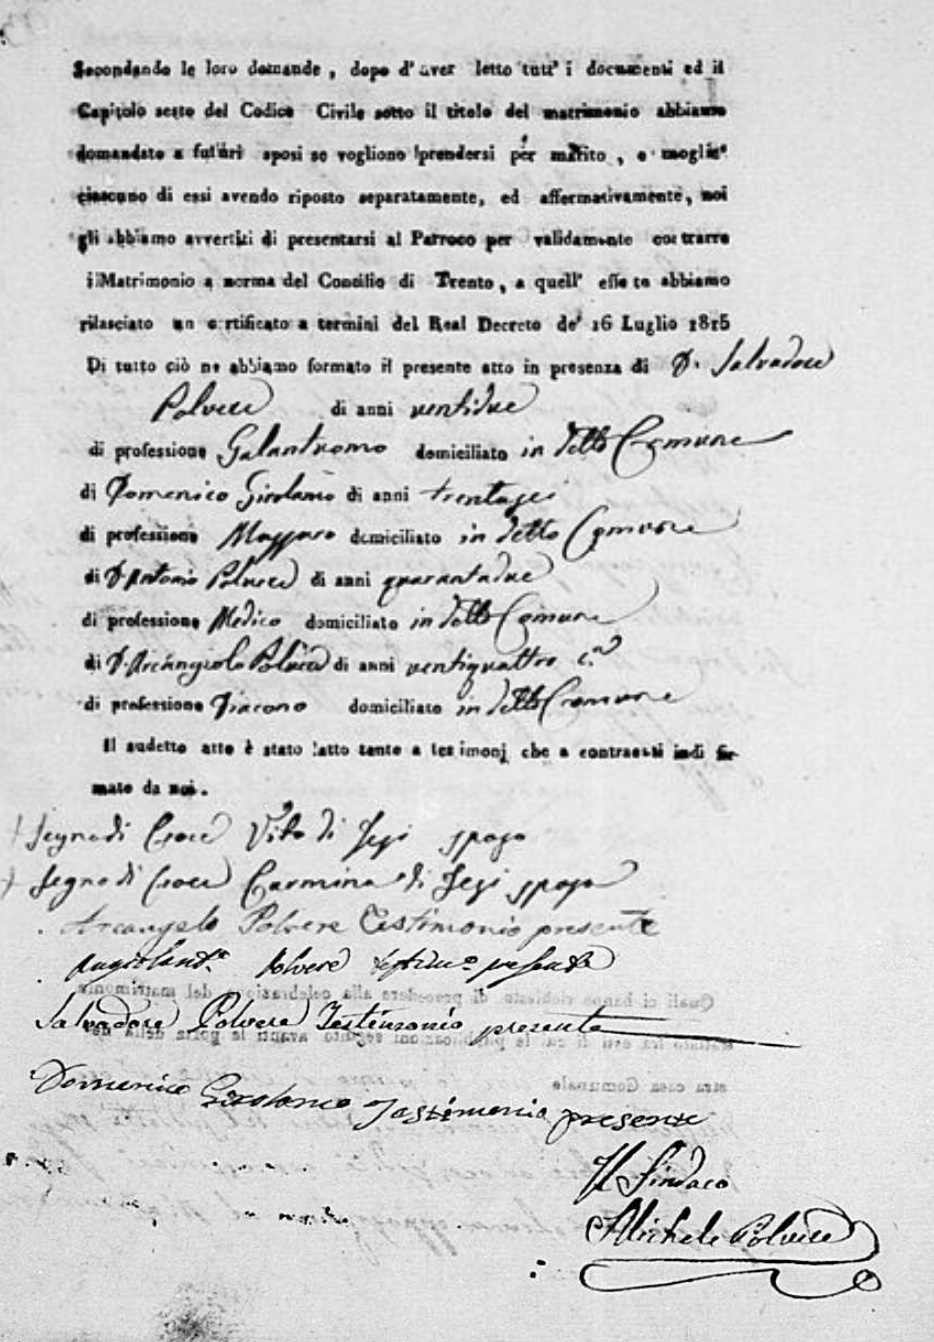 Secondando le loro domande, dopo d'aver letto tutt' i documenti ed il
Capitolo sesto del Codice Civile sotto il titolo del matrimonio abbiamo
domandato a futuri sposi se vogliono prendersi per marito, e moglie
ciascuno di essi avendo riposto separatamente, ed affermativamente, noi
gli abbiamo avvertiti di presentarsi al Parroco per validamente contrarre
il Matrimonio a norma del Concilio di Trento, a quell' effetto abbiamo
rilasciato un certificato a termini del Real Decreto de' 16 Luglio 1815
Di tutto ciò ne abbiamo formato il presente atto in presenza di D. Salvadore
Polvere di anni ventidue
di professione Galantuomo domiciliato in detto Comune
di Domenico Girolamo di anni trentasei
di professione Massaro domiciliato in detto Comune
di D. Antonio Polvere di anni quarantadue
di professione Medico domiciliato in detto Comune
di D. Arcangiolo Polvere di anni ventiquattro
di professione Diacono domiciliato in detto Comune
Il sudetto atto è stato fatto tanto a testimonj che a contraenti indi fir
mato da noi.
+ Segno di Croce Vito di Iesi sposo
+ Segno di Croce Carmina di Iesi sposa
Arcangelo Polvere Testimonio presente
Polvere presente
Salvadore Polvere Testimonio presente
Domenico Girolamo Testimonio presente
Il Sindaco
Michele Polvere